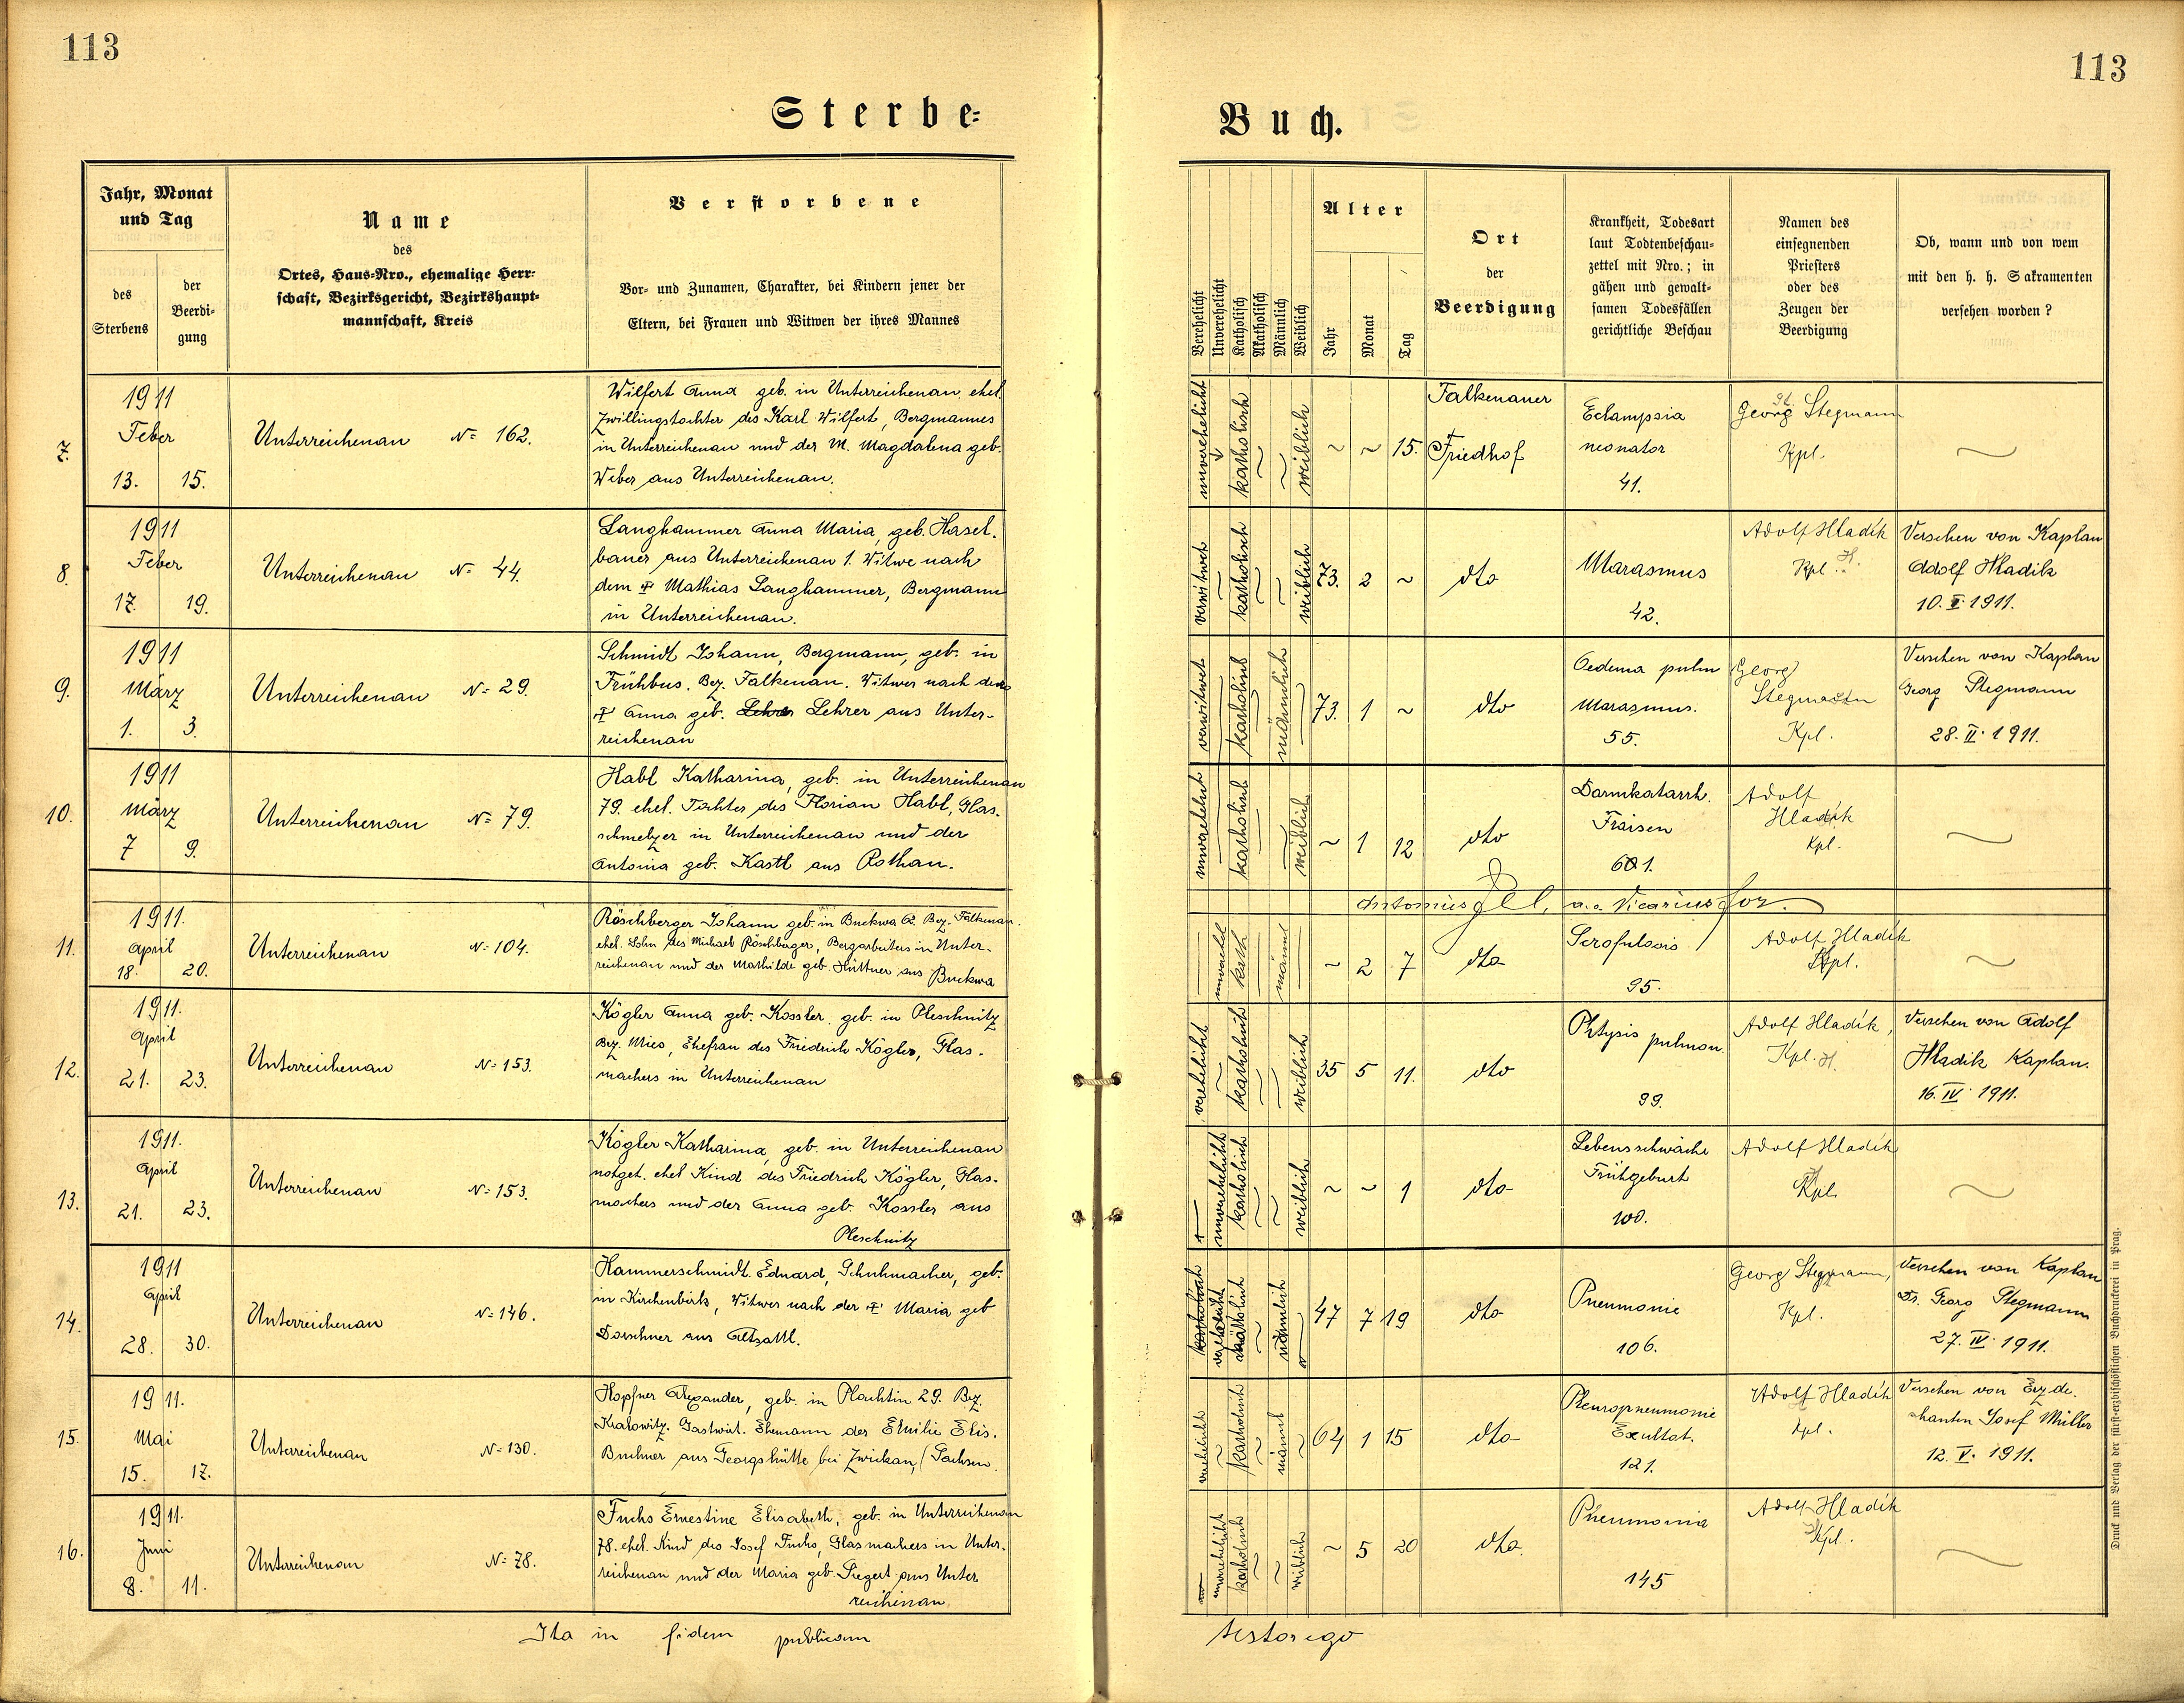 113
113
Sterbe-
Buch.
Jahr, Monat
und Tag
des
Sterbens
der
Beerdi-
gung
Name
des
Ortes, Haus-Nro., ehemalige Herr-
schaft, Bezirksgericht, Bezirkshaupt-
mannschaft, Kreis
Verstorbene
Vor- und Zunamen, Charakter, bei Kindern jener der
Eltern, bei Frauen und Witwen der ihres Mannes
Verehelicht
Unverehelicht
Katholisch
Akatholisch
Männlich
Weiblich
Alter
Jahr
Monat
Tag
Ort
der
Beerdigung
Krankheit, Todesart
laut Todtenbeschau-
zettel mit Nro.; in
gähen und gewalt-
samen Todesfällen
gerichtliche Beschau
Namen des
einsegnenden
Priesters
oder des
Zeugen der
Beerdigung
Ob, wann und von wem
mit den h. h. Sakramenten
versehen worden?
7.
1911
Feber
13. 15.
Unterreichenau No 162.
Wilfert Anna geb. in Unterreichenau, ehel.
Zwillingstochter des Karl Wilfert, Bergmannes
in Unterreichenau und der M. Magdalena geb.
Weber aus Unterreichenau.
unverehelicht
katholisch
weiblich
~ ~ 15.
Falkenauer
Friedhof
Eclampsia
neonator
41.
Georg Stegmann
Kpl.
~
8.
1911
Feber
17. 19.
Unterreichenau No 44.
Langhammer Anna Maria, geb. Hasel-
bauer aus Unterreichenau 1. Witwe nach
dem ✝ Mathias Langhammer, Bergmann
in Unterreichenau.
verwitwet
katholisch
weiblich
73. 2 ~
dto
Marasmus
42.
Adolf Hladik
Kpl. H.
Versehen von Kaplan
Adolf Hladik
10. II. 1911.
9.
1911
März
1. 3.
Unterreichenau No 29.
Schmidt Johann, Bergmann, geb. in
Frühbus. Bez. Falkenau. Witwer nach der
✝ Anna geb. Lehrer Lehrer aus Unter-
reichenau
verwitwet
katholisch
männlich
73. 1 ~
dto
Oedema pulm
Marasmus.
55.
Georg
Stegmann
Kpl.
Versehen von Kaplan
Georg Stegmann
28. II. 1911.
10.
1911
März
7 9.
Unterreichenau No 79.
Habl Katharina, geb. in Unterreichenau
79. ehel. Tochter des Florian Habl, Glas-
schmelzer in Unterreichenau und der
Antonia geb. Kastl aus Rothau.
unverehel
katholisch
weiblich
~ 1 12
dto
Darmkatarrh.
Fraisen
61.
Adolf
Hladik
Kpl.
~
Antonius a.e. Vicarius for.
11.
1911.
April
18. 20.
Unterreichenau No 104.
Röschberger Johann geb. in Buckwa 62. Bez. Falkenau.
ehel. Sohn des Michael Röschberger, Bergarbeiters in Unter-
reichenau und der Mathilde geb. Hüttner aus Buckwa
unverehel
kath
männl
~ 2 7
dto
Scrofulosis
95.
Adolf Hladik
Kpl.
~
12.
1911.
April
21. 23.
Unterreichenau No 153.
Kögler Anna geb. Kossler, geb. in Pleschnitz
Bez. Mies, Ehefrau des Friedrich Kögler, Glas-
machers in Unterreichenau
verehelicht
katholisch
weiblich
35 5 11.
dto
Phtysis pulmon.
99.
Adolf Hladik,
Kpl. H.
Versehen von Adolf
Hladik Kaplan.
16. IV. 1911.
13.
1911.
April
21. 23.
Unterreichenau No 153.
Kögler Katharina, geb. in Unterreichenau
notget. ehel Kind des Friedrich Kögler, Glas-
machers und der Anna geb. Kossler aus
Pleschnitz
unverehelicht
katholisch
weiblich
~ ~ 1
dto
Lebensschwäche
Frühgeburt
100.
Adolf Hladik
Kpl.
~
14.
1911
April
28. 30.
Unterreichenau No 146.
Hammerschmidt Eduard, Schuhmacher, geb.
in Kirchenbirk, Witwer nach der ✝ Maria geb
Dorschner aus Altsattl.
katholisch
männlich
47 7 19
dto
Pneumonie
106.
Georg Stegmann,
Kpl.
Versehen von Kaplan
Dr. Georg Stegmann
27. IV. 1911.
15.
1911.
Mai
15. 17.
Unterreichenau No 130.
Hopfner Alexander, geb. in Plachtin 29. Bez.
Kralowitz. Gastwirt. Ehemann der Emilie Elis.
Buchner aus Georgshütte bei Zwickau, (Sachsen.
verehelicht
katholisch
männl
64 1 15
dto
Pleuropneumonie
Exultat.
121.
Adolf Hladik
Kpl.
Versehen von Erzde-
chanten Josef Müller
12. V. 1911.
16.
1911.
Juni
8. 11.
Unterreichenau No 78.
Fuchs Ernestine Elisabeth, geb. in Unterreichenau
78. ehel. Kind des Josef Fuchs, Glasmachers in Unter-
reichenau und der Maria geb. Siegert aus Unter
reichenau.
unverehelicht
katholisch
weiblich
~ 5 20
dto.
Pneumonia
145
Adolf Hladik
Kpl.
~
Ita in fidem publicam
testor ego
Druck und Verlag der fürst-erzbischöflichen Buchdruckerei in Prag.